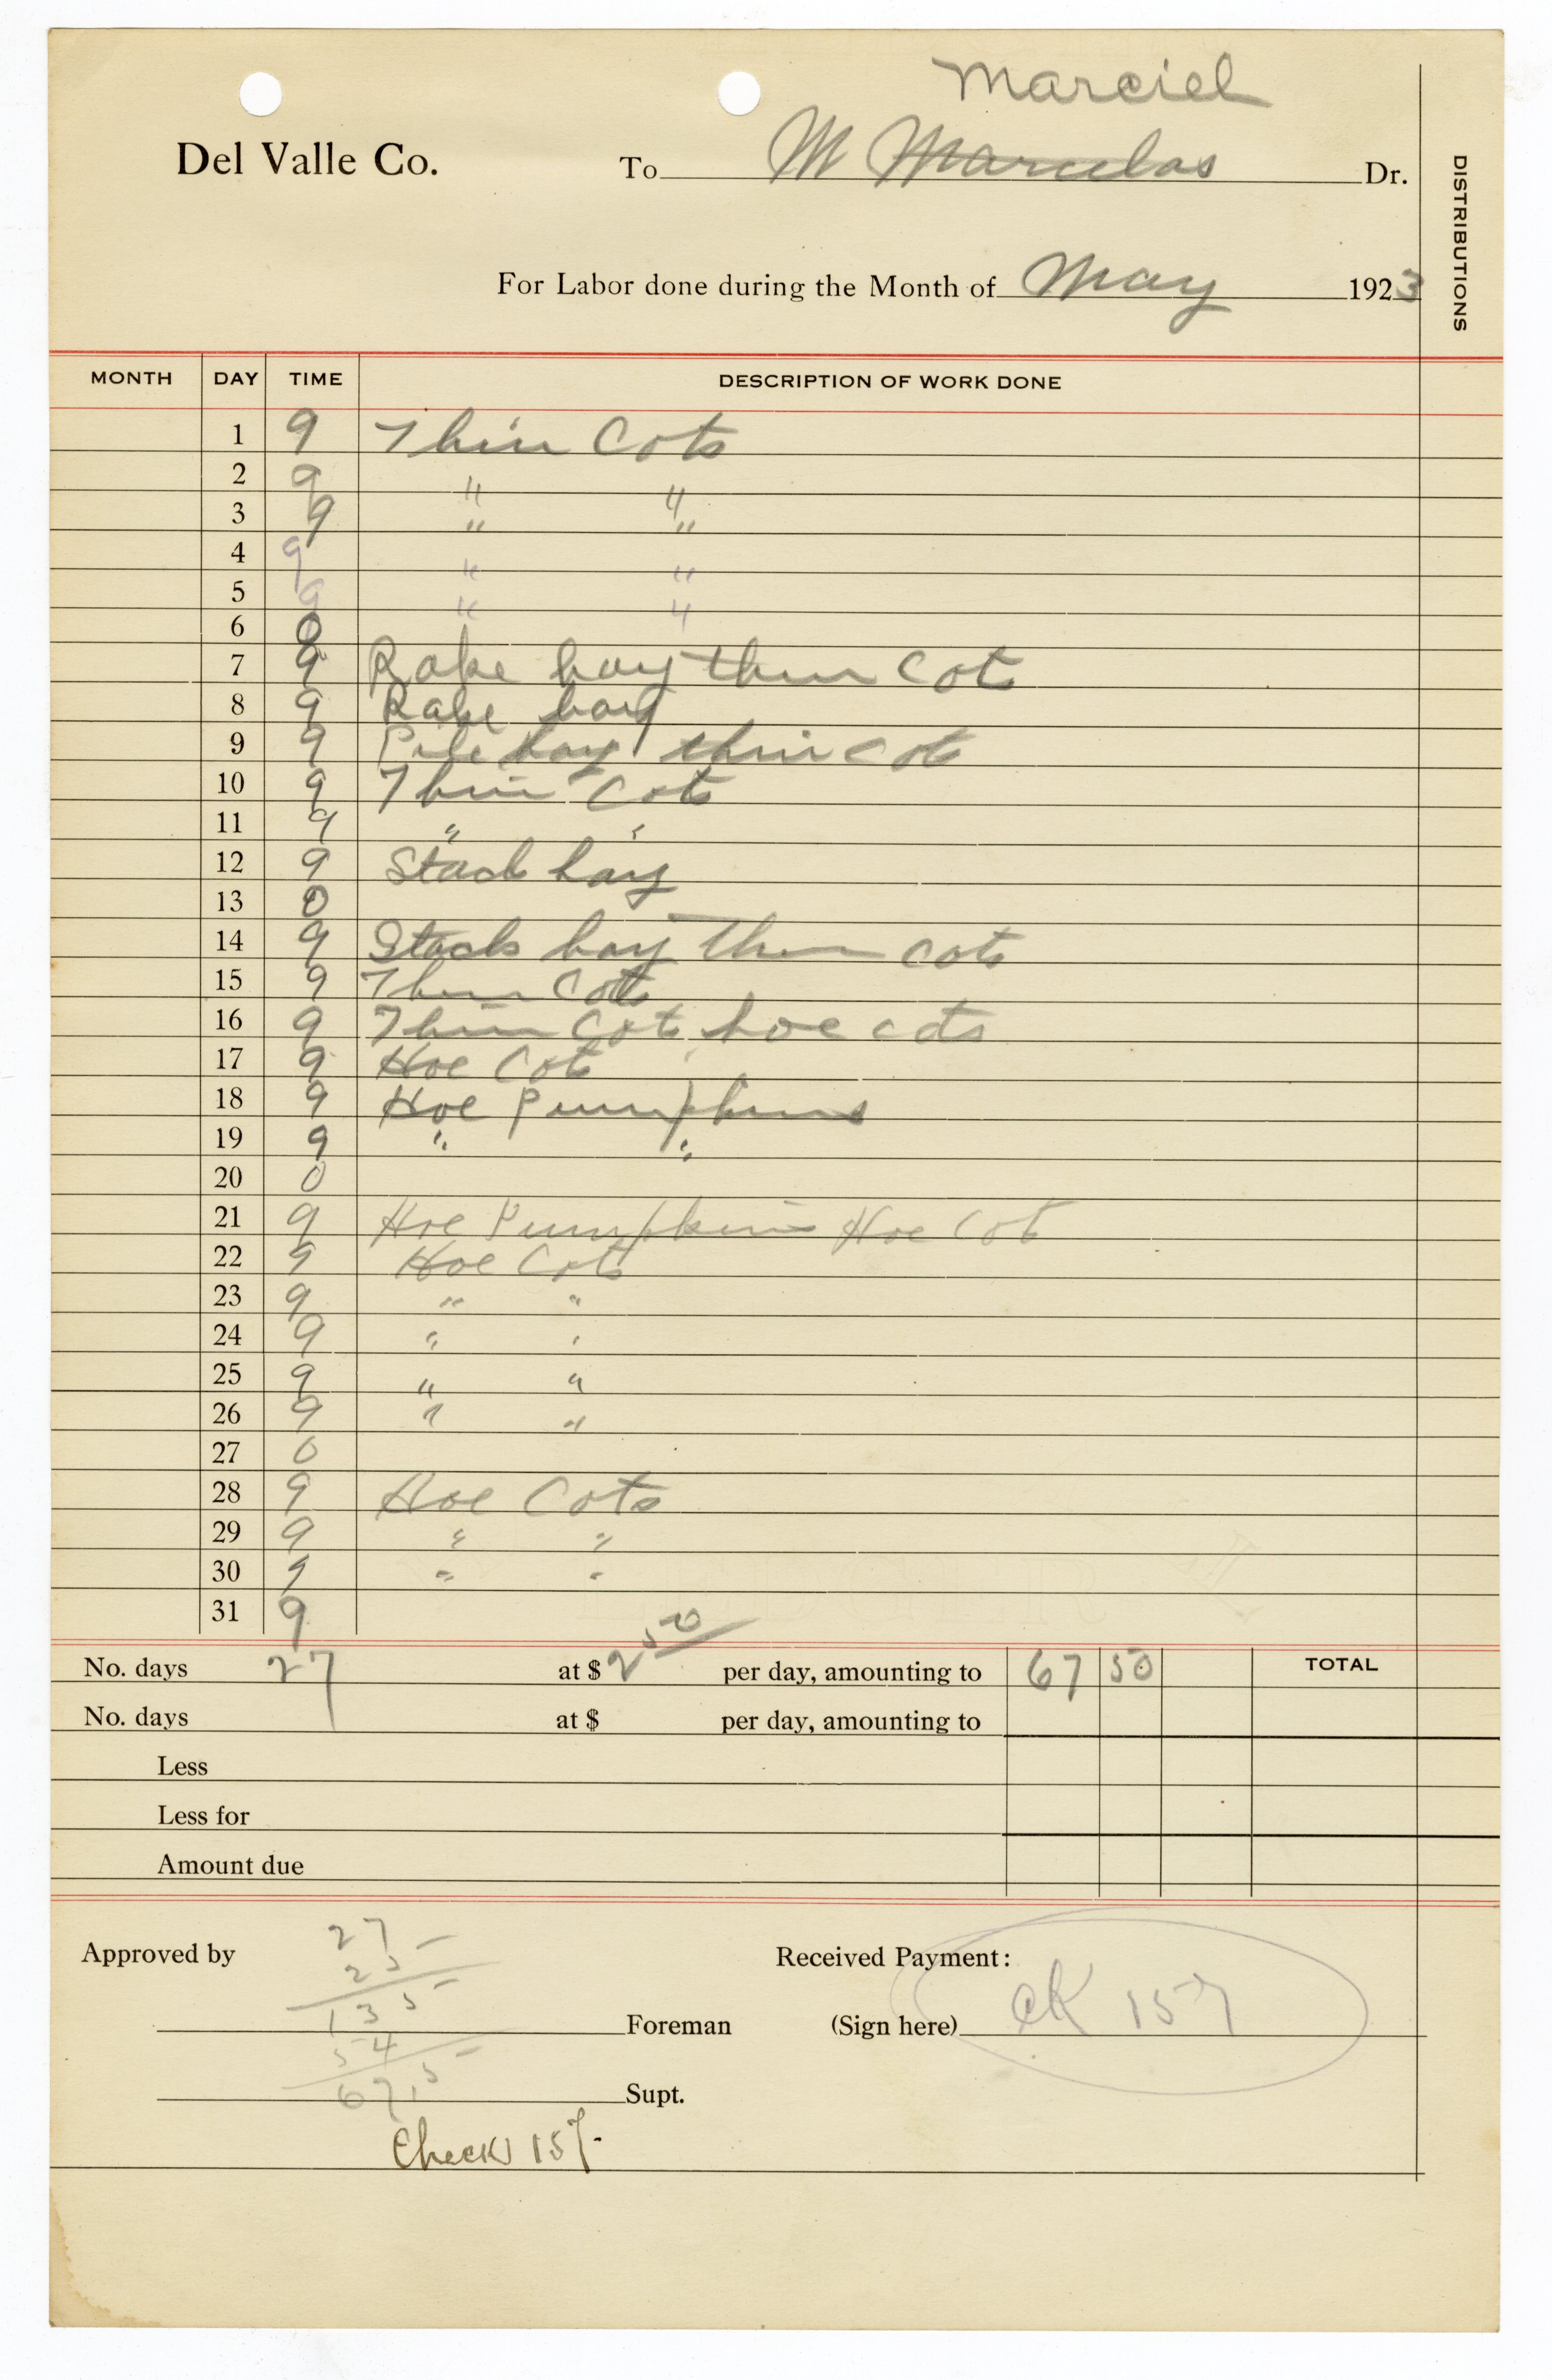 Marciel
Del Valle Co. To M Marcelas Dr.
DISTRIBUTIONS
For Labor done during the Month of May 1923
MONTH DAY TIME DESCRIPTION OF WORK DONE
1 9 Thin Cots
2 9 " "
3 9 " "
4 9 " "
5 9 " "
6 0
7 9 Rake hay thin Cot
8 9 Rake hay
9 9 Pile hay thin cot
10 9 Thin Cots
11 9 " "
12 9 Stack hay
13 0
14 9 Stack hay Thin cots
15 9 Thin Cots
16 9 Thin Cot hoe cots
17 9 Hoe Cot
18 9 Hoe Pumpkins
19 9 " "
20 0
21 9 Hoe Pumpkins Hoe Cot
22 9 Hoe Cots
23 9 " "
24 9 " "
25 9 " "
26 9 " "
27 0
28 9 Hoe Cots
29 9 " "
30 9 " "
31 9
No. days 27 at $ 2 50 per day, amounting to 67 50 TOTAL
No. days at $ per day, amounting to
Less
Less for
Amount due
27
Approved by Received Payment:
25
135
Foreman (Sign here) CK 157
54
67.5
Supt.
Check 157.